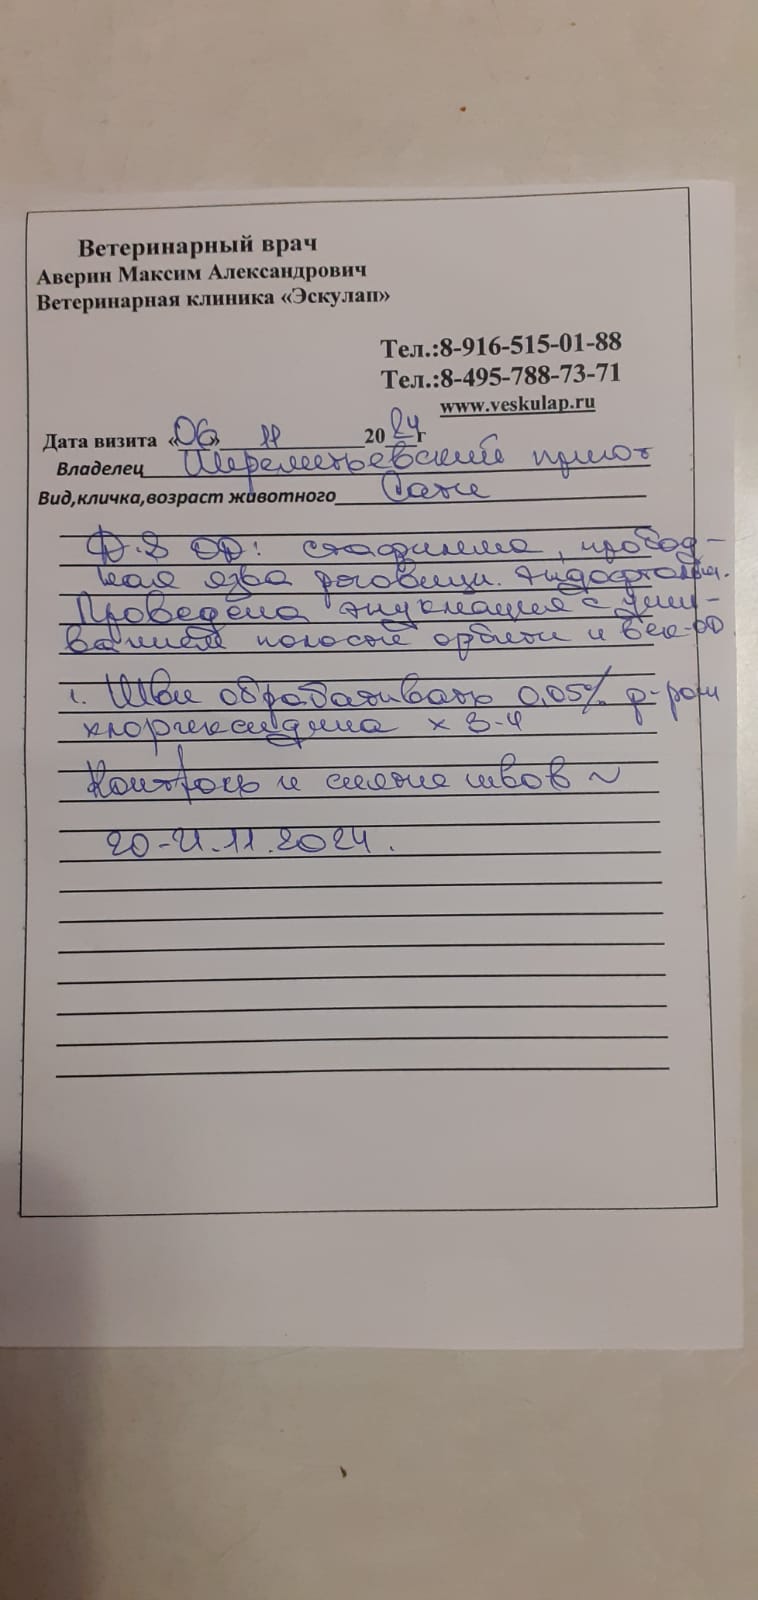 Ветеринарный врач
Аверин Максим Александрович
Ветеринарная клиника «Эскулап»
Тел.:8-916-515-01-88
Тел.:8-495-788-73-71
www.veskulap.ru
Дата визита «06» 11 2024г
Владелец Шереметьевский приют
Вид,кличка,возраст животного
D.S OD: стафилома, пробод-
ная язва роговицы. Эндофтальм.
Проведена энуклеация с уши-
ванием полости орбиты и век-OD
1. Швы обрабатывать 0,05% р-ром
хлоргексидина х 3-4
Контроль и снятие швов ~
20-21.11.2024.